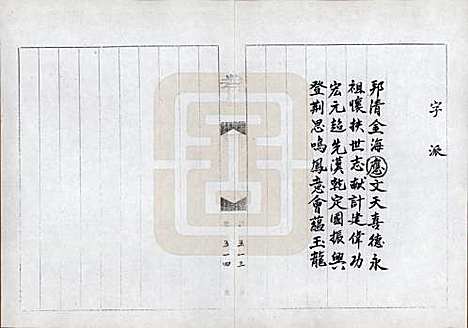 字派
邦清金海應文天喜德永
祖懷扶世志献計建偉功
宏元超先漢乾定國振興
登荆思鳴鳳意會蘊玉龍
五一三
五一四